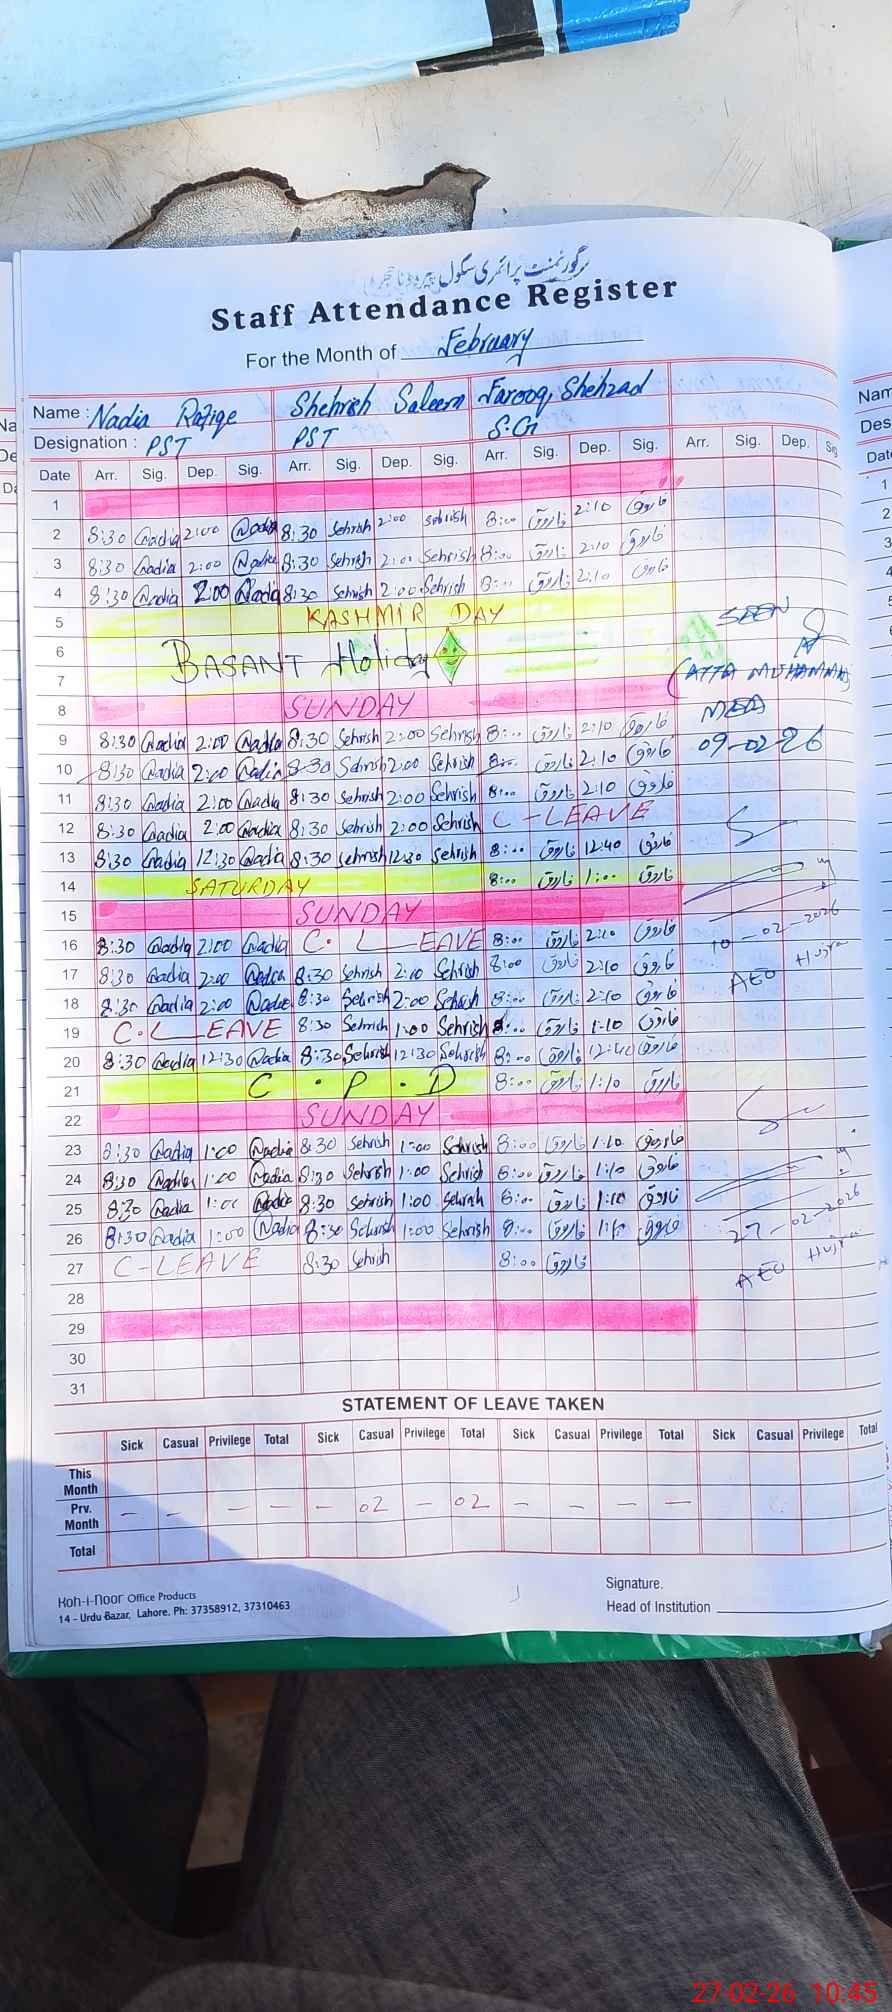 گورنمنٹ پرائمری سکول
Staff Attendance Register
For the Month of February
Name : Nadia Rafiqe Shehrish Saleem Farooq Shehzad
Designation : PST PST S.G
Date Arr. Sig. Dep. Sig. Arr. Sig. Dep. Sig. Arr. Sig. Dep. Sig. Arr. Sig. Dep. Sig
1
2 8:30 Nadia 2:00 Nadia 8:30 Sehrish 2:00 Sehrish 8:00 فاروق 2:10 فاروق
3 8:30 Nadia 2:00 Nadia 8:30 Sehrish 2:00 Sehrish 8:00 فاروق 2:10 فاروق
4 8:30 Nadia 2:00 Nadia 8:30 Sehrish 2:00 Sehrish 8:00 فاروق 2:10 فاروق
5 KASHMIR DAY
6 BASANT Holiday SEEN
7 (ATTA MUHAMMAD)
8 SUNDAY MEA
9 8:30 Nadia 2:00 Nadia 8:30 Sehrish 2:00 Sehrish 8:00 فاروق 2:10 فاروق 09-02-26
10 8:30 Nadia 2:00 Nadia 8:30 Sehrish 2:00 Sehrish 8:00 فاروق 2:10 فاروق
11 8:30 Nadia 2:00 Nadia 8:30 Sehrish 2:00 Sehrish 8:00 فاروق 2:10 فاروق
12 8:30 Nadia 2:00 Nadia 8:30 Sehrish 2:00 Sehrish C-LEAVE
13 8:30 Nadia 12:30 Nadia 8:30 Sehrish 12:30 Sehrish 8:00 فاروق 12:40 فاروق
14 SATURDAY 8:00 فاروق 1:00 فاروق
15 SUNDAY
16 8:30 Nadia 2:00 Nadia C.LEAVE 8:00 فاروق 2:10 فاروق 10-02-2026
17 8:30 Nadia 2:00 Nadia 8:30 Sehrish 2:00 Sehrish 8:00 فاروق 2:10 فاروق AEO Hujra
18 8:30 Nadia 2:00 Nadia 8:30 Sehrish 2:00 Sehrish 8:00 فاروق 2:10 فاروق
19 C.LEAVE 8:30 Sehrish 1:00 Sehrish 8:00 فاروق 1:10 فاروق
20 8:30 Nadia 12:30 Nadia 8:30 Sehrish 12:30 Sehrish 8:00 فاروق 12:40 فاروق
21 C.P.D 8:00 فاروق 1:10 فاروق
22 SUNDAY
23 8:30 Nadia 1:00 Nadia 8:30 Sehrish 1:00 Sehrish 8:00 فاروق 1:10 فاروق
24 8:30 Nadia 1:00 Nadia 8:30 Sehrish 1:00 Sehrish 8:00 فاروق 1:10 فاروق
25 8:30 Nadia 1:00 Nadia 8:30 Sehrish 1:00 Sehrish 8:00 فاروق 1:10 فاروق
26 8:30 Nadia 1:00 Nadia 8:30 Sehrish 1:00 Sehrish 8:00 فاروق 1:10 فاروق 27-02-2026
27 C-LEAVE 8:30 Sehrish 8:00 فاروق AEO Hujra
28
29
30
31
STATEMENT OF LEAVE TAKEN
Sick Casual Privilege Total Sick Casual Privilege Total Sick Casual Privilege Total Sick Casual Privilege Total
This Month
Prv. Month - - - - - 02 - 02 - - - -
Total
Koh-i-Noor Office Products
14 - Urdu Bazar, Lahore. Ph: 37358912, 37310463
Signature.
Head of Institution
27-02-26 10:45